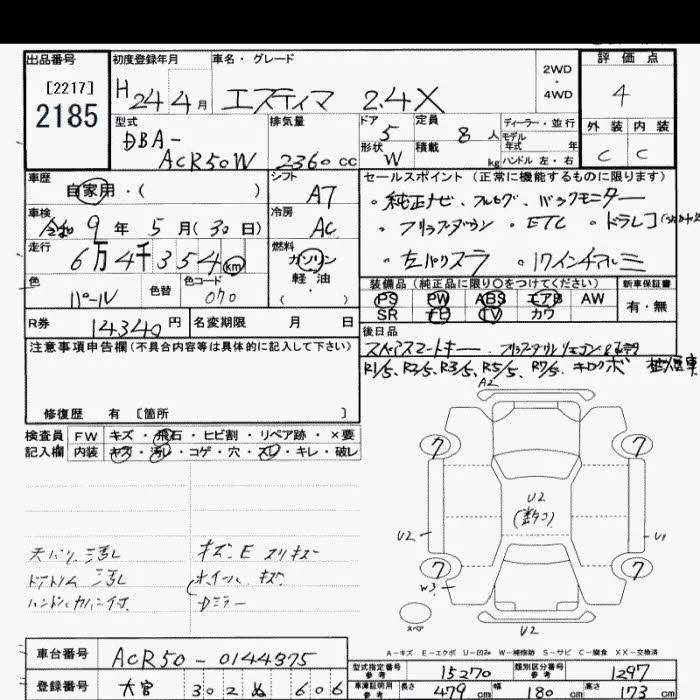 出品番号
[2217]
2185
初度登録年月
H 24 4月
車名・グレード
エスティマ 2.4X
2WD
・
4WD
評価点
4
外装 内装
C C
型式
DBA-
ACR50W
排気量
2360 cc
ドア
5
形状
W
定員
8 人
積載
kg
ディーラー・並行
モデル
年式 年
ハンドル 左・右
車歴
自家用・( )
シフト
A7
車検
令和 9 年 5 月 (30 日)
冷房
AC
走行
6万4千354km
燃料
ガソリン
軽油
( )
色
パール
色替
色コード
070
R券
14340円
名変期限 月 日
セールスポイント(正常に機能するものに限ります)
・純正ナビ、フルセグ、バックモニター
・フリップダウン ・ETC ・ドラレコ
・左パワスラ ・17インチアルミ
装備品(純正品に限り〇をつけてください)
PS PW ABS エアB AW
SR TV カワ
新車保証書
有・無
後日品
スペアスマートキー、
R1/5、R2/5、R3/5、R5/5、R7/5、キロクボ
注意事項申告欄(不具合内容等は具体的に記入して下さい)
修復歴 有 [箇所 ]
検査員
記入欄
FW キズ・飛石・ヒビ割・リペア跡・×要
内装 キズ・汚レ・コゲ・穴・スレ・キレ・破レ
天バリ 汚レ
ドアトリム 汚レ
ハンドルカバー付
キズ、E スリキズ
ホイール キズ
Dミラー
A2
7
7
U2
(数ケ)
U2
U1
7
7
W3
スペア
U2
A-キズ E-エクボ U-凹み W-補修跡 S-サビ C-腐食 XX-交換済
車台番号
ACR50-0144375
登録番号
大宮 302 ぬ 606
型式指定番号
参考
15270
類別区分番号
参考
1297
車庫証明用
参考
長さ
479 cm
幅
180 cm
高さ
173 cm